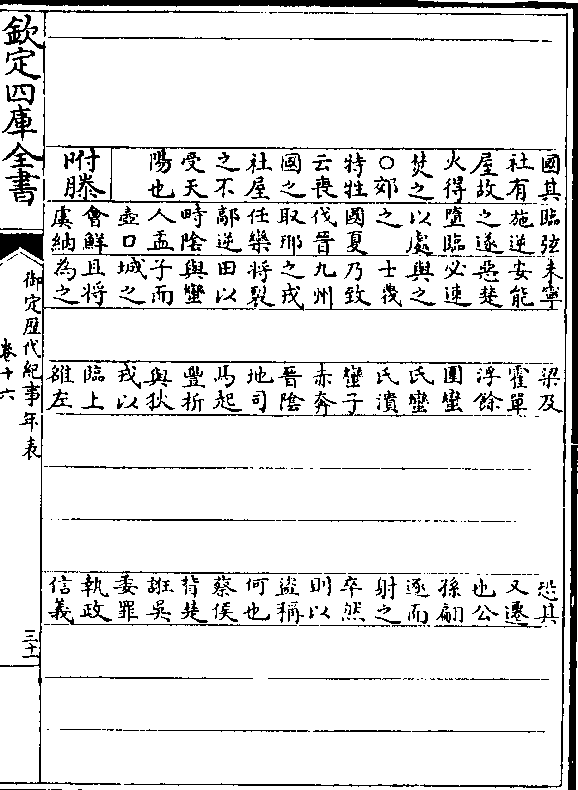 欽定四庫全書
國其
社有
屋故
火得
焚之
○郊
特牲
云喪
國之
社屋
之不
受天
陽也
附滕
臨弦
施逆
之遂
墮臨
以處
之
國夏
伐晉
取邢
任欒
鄗逆
時陰
人盂
壺口
會鮮
虞納
未寧
安能
惡楚
必速
與之
士蔑
乃致
九州
之戎
將裂
田以
與蠻
子而
城之
且將
為之
梁及
霍單
浮餘
圍蠻
氏蠻
氏潰
蠻子
赤奔
晉陰
地司
馬起
豐析
與狄
戎以
臨上
雒左
恐其
又遷
也公
孫翩
逐而
射之
卒然
則以
盜稱
何也
蔡侯
背楚
誑吳
委罪
執政
信義
御定歷代紀事年表
卷十六
三十一